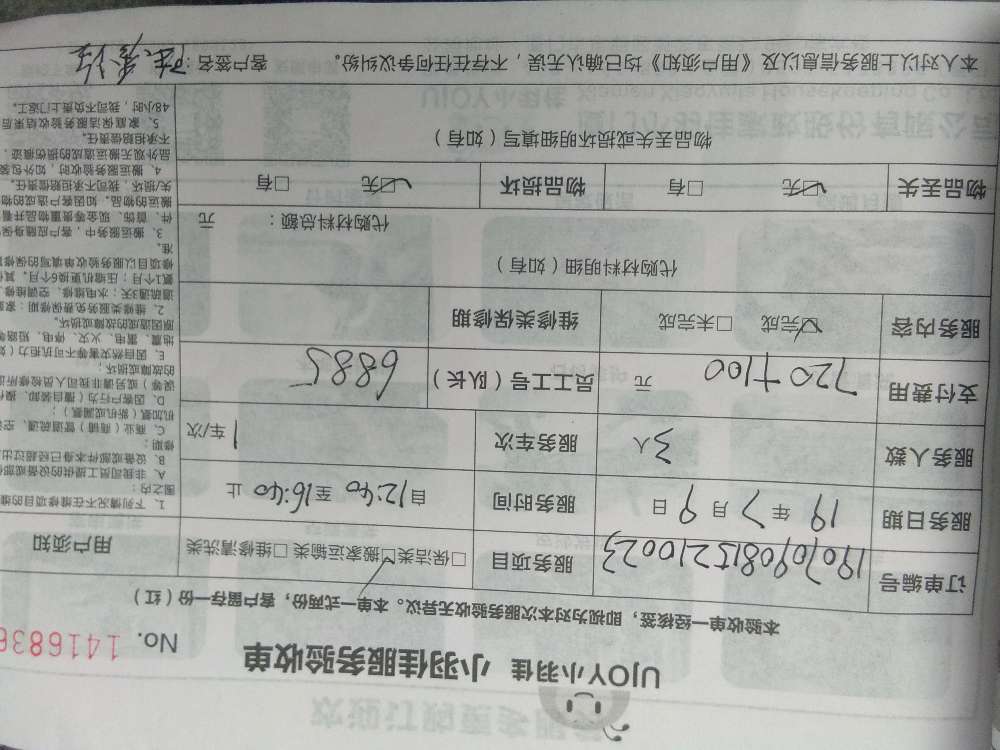 UJOY小羽佳 小羽佳服务验收单
No. 1416836
本验收单一经核签，即视为对本次服务验收无异议。本单一式两份，客户留存一份（红）
订单编号 19070908152210023 服务项目 □保洁类☑搬家运输类□维修清洗类 用户须知
服务日期 19 年 7 月 9 日 服务时间 自12:40 至16:40 止
服务人数 3人 服务车次 1 车/次
支付费用 720+100 元 员工工号（队长） 6885
服务内容 ☑完成 □未完成 维修类保修期
代购材料明细（如有）
代购材料总额： 元
物品丢失 □有 ☑无 物品损坏 □有 ☑无
物品丢失或损坏明细填写（如有）
1、下列情况不在维修项目的维
围之内：
A、非我司员工提供的设备或部
B、设备或部件本身已经超过出
修期；
C、商业（商铺）管道疏通、空
机加氟（拆机或漏氟）；
D、因客户行为（擅自装卸、操作
误等）或另请非我司人员检修所
的故障或损坏；
E、因自然灾害等不可抗力（如
地震、雷电、火灾、停电、短路等
原因造成的故障或损坏。
2、维修类服务免费保修期：家
道疏通3天；水电维修、空调维修
氟1个月；压缩机更换6个月。其
修项目以服务验收单填写的保修
准。
3、搬运服务中，客户应随身保
件、首饰、现金等贵重物品并看
搬运的物品。如因客户造成的物
失/损坏，我司不承担赔偿责任。
4、搬运服务验收时，如外包装
品外观无搬运造成的损伤痕迹，
不承担赔偿责任。
5、家庭保洁服务验收结束后
48小时，我司不负责上门返工。
本人对以上服务信息以及《用户须知》均已确认无误，不存在任何争议纠纷。 客户签名：